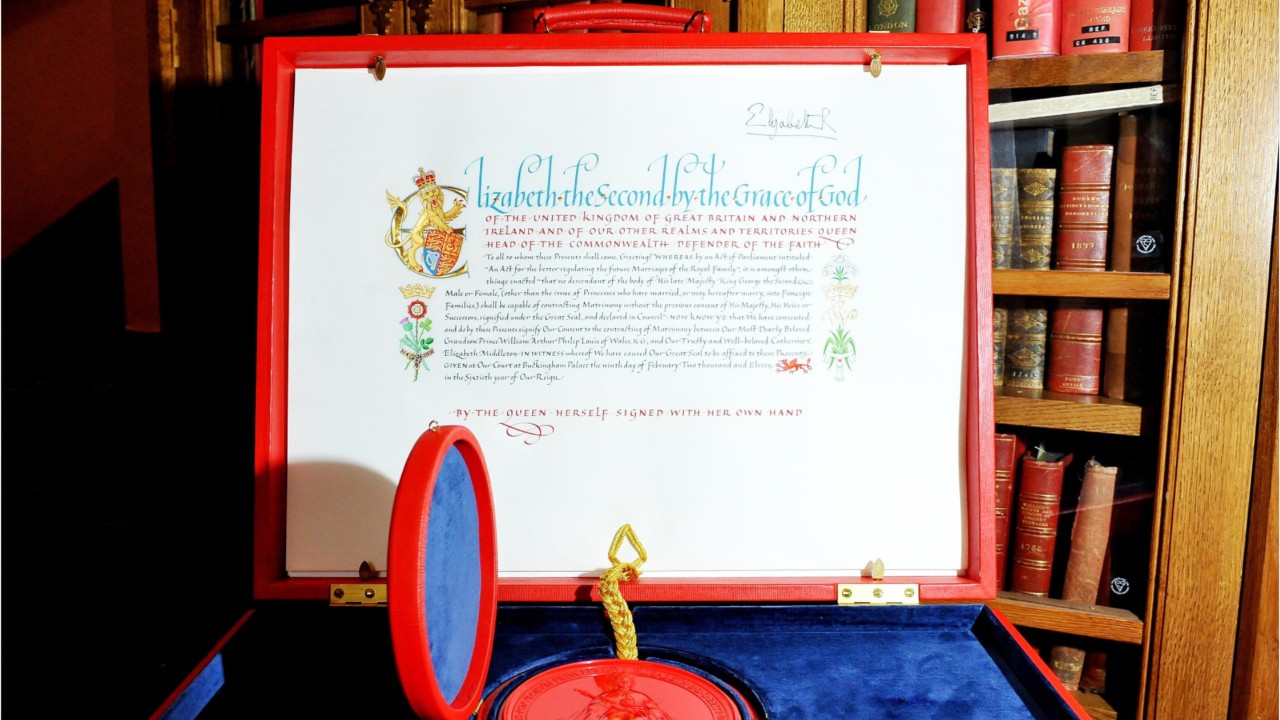 Elizabeth R
Elizabeth·the·Second·by·the·Grace·of·God
OF·THE·UNITED·KINGDOM·OF·GREAT·BRITAIN·AND·NORTHERN
IRELAND·AND·OF·OUR·OTHER·REALMS·AND·TERRITORIES·QUEEN
HEAD·OF·THE·COMMONWEALTH·DEFENDER·OF·THE·FAITH
To all to whom these Presents shall come, Greeting! WHEREAS by an Act of Parliament intituled
"An Act for the better regulating the future Marriages of the Royal Family", it is amongst other
things enacted "that no descendant of the body of His late Majesty King George the Second,
Male or Female, (other than the issue of Princesses who have married, or may hereafter marry, into Foreign
Families,) shall be capable of contracting Matrimony without the previous consent of His Majesty, His Heirs or
Successors, signified under the Great Seal, and declared in Council". NOW KNOW YE that We have consented
and do by these Presents signify Our Consent to the contracting of Matrimony between Our Most Dearly Beloved
Grandson Prince William Arthur Philip Louis of Wales, K.G., and Our Trusty and Well-beloved Catherine
Elizabeth Middleton. IN WITNESS whereof We have caused Our Great Seal to be affixed to these Presents.
GIVEN at Our Court at Buckingham Palace the ninth day of February Two thousand and Eleven
in the Sixtieth year of Our Reign.
BY THE QUEEN HERSELF SIGNED WITH HER OWN HAND
LONDON
Gaz
914.2
REF
1853
1788